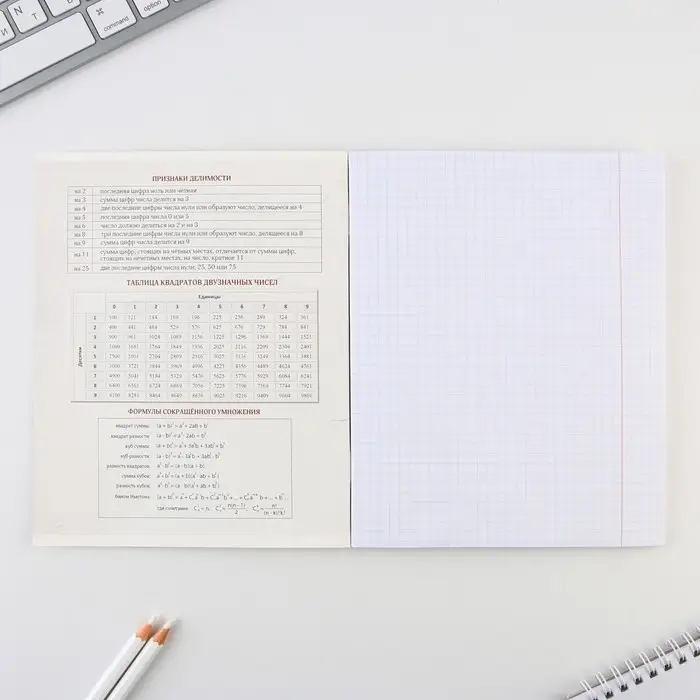 N
T
И
⌘
command
option
ПРИЗНАКИ ДЕЛИМОСТИ
на 2 последняя цифра ноль или чётная
на 3 сумма цифр числа делится на 3
на 4 две последние цифры числа нули или образуют число, делящееся на 4
на 5 последняя цифра числа 0 или 5
на 6 число должно делиться на 2 и на 3
на 8 три последние цифры числа нули или образуют число, делящееся на 8
на 9 сумма цифр числа делится на 9
на 11 сумма цифр, стоящих на чётных местах, отличается от суммы цифр,
стоящих на нечётных местах, на число, кратное 11
на 25 две последние цифры числа нули, 25, 50 или 75
ТАБЛИЦА КВАДРАТОВ ДВУЗНАЧНЫХ ЧИСЕЛ
Единицы
0 1 2 3 4 5 6 7 8 9
Десятки
1 100 121 144 169 196 225 256 289 324 361
2 400 441 484 529 576 625 676 729 784 841
3 900 961 1024 1089 1156 1225 1296 1369 1444 1521
4 1600 1681 1764 1849 1936 2025 2116 2209 2304 2401
5 2500 2601 2704 2809 2916 3025 3136 3249 3364 3481
6 3600 3721 3844 3969 4096 4225 4356 4489 4624 4761
7 4900 5041 5184 5329 5476 5625 5776 5929 6084 6241
8 6400 6561 6724 6889 7056 7225 7396 7569 7744 7921
9 8100 8281 8464 8649 8836 9025 9216 9409 9604 9801
ФОРМУЛЫ СОКРАЩЁННОГО УМНОЖЕНИЯ
квадрат суммы: (a + b)² = a² + 2ab + b²
квадрат разности: (a - b)² = a² - 2ab + b²
куб суммы: (a + b)³ = a³ + 3a²b + 3ab² + b³
куб разности: (a - b)³ = a³ - 3a²b + 3ab² - b³
разность квадратов: a² - b² = (a - b)(a + b)
сумма кубов: a³ + b³ = (a + b)(a² - ab + b²)
разность кубов: a³ - b³ = (a - b)(a² + ab + b²)
бином Ньютона:
где сочетания